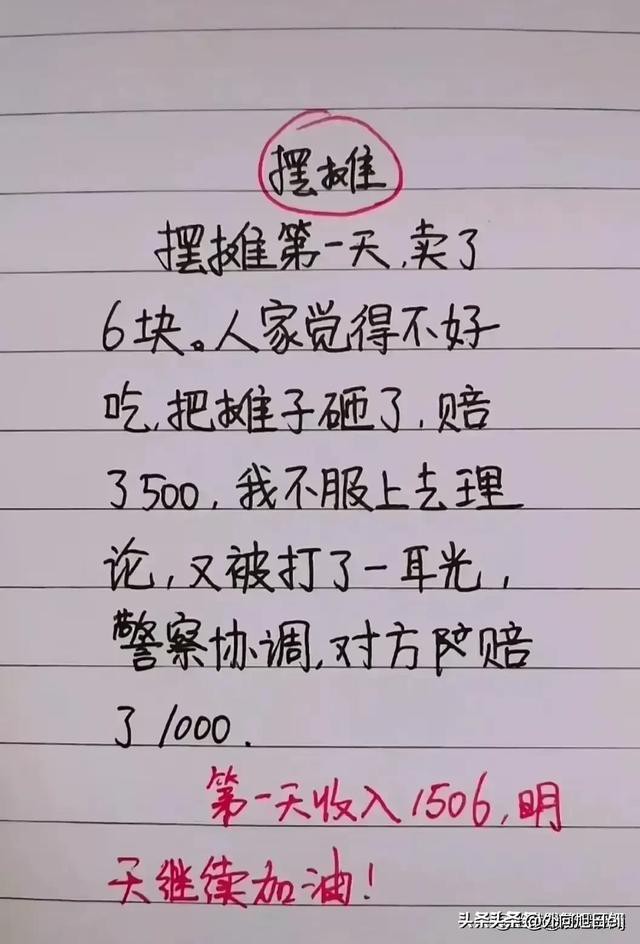 摆摊
摆摊第一天，卖了
6块。人家觉得不好
吃，把摊子砸了，赔
了500，我不服上去理
论，又被打了一耳光，
警察协调，对方陪赔
了1000.
第一天收入1506，明
天继续加油！
头条